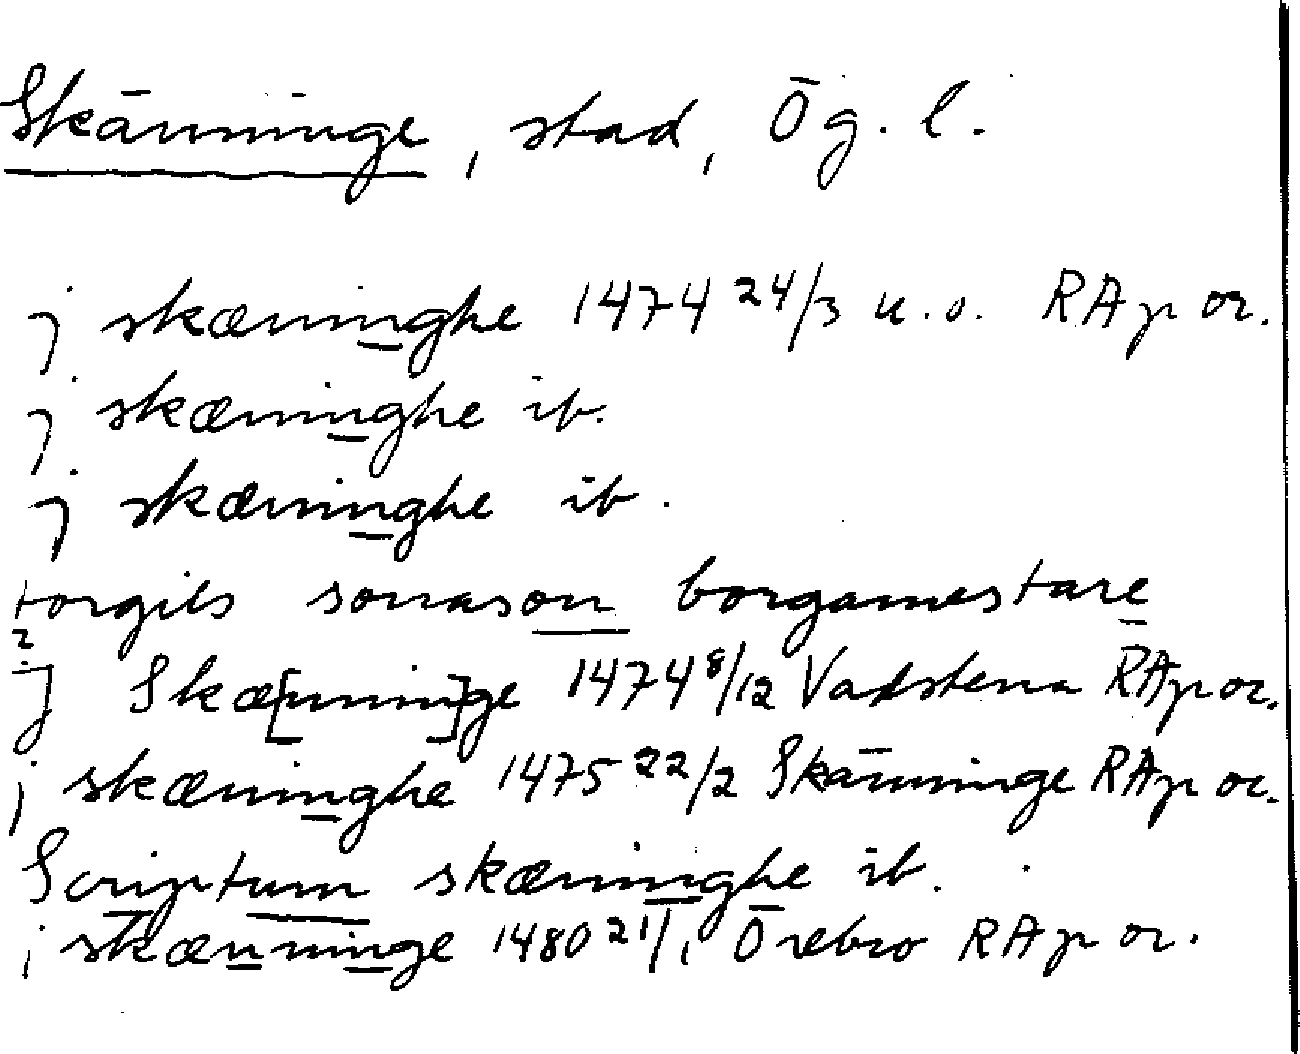 Skänninge, stad, Ög. l.
j skæninghe 1474 24/3 u.o. RAp or.
j skæninghe ib.
j skæninghe ib.
torgils sonason borgamestare
j Skæ[nnin]ge 1474 8/12 Vadstena RAp or.
j skæninghe 1475 22/2 Skänninge RAp or.
Scriptum skæninghe ib.
i skænninge 1480 21/1 Örebro RAp or.